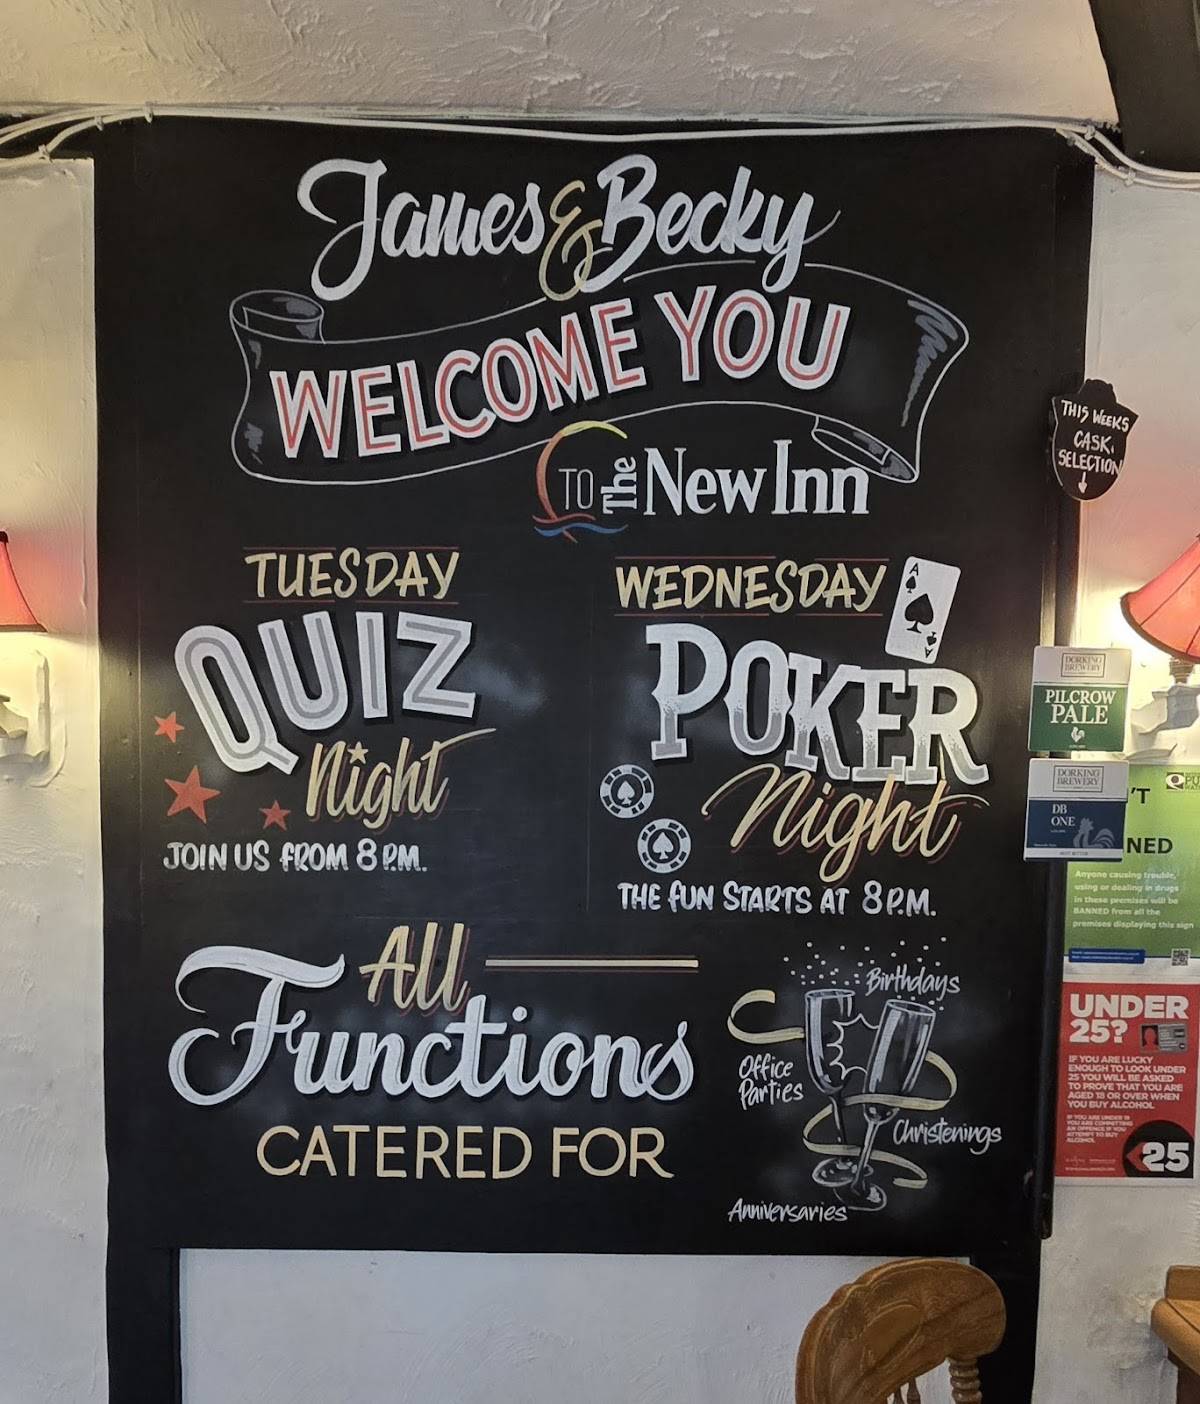 James & Becky
WELCOME YOU
TO The New Inn
TUESDAY
QUIZ
Night
JOIN US FROM 8 P.M.
WEDNESDAY
A
A
POKER
Night
THE FUN STARTS AT 8 P.M.
All
Functions
CATERED FOR
Birthdays
Office
Parties
Christenings
Anniversaries
THIS WEEKS
CASK
SELECTION
DORKING
BREWERY
PILCROW
PALE
DORKING
BREWERY
DB
ONE
'T
NED
Anyone causing trouble,
using or dealing in drugs
in these premises will be
BANNED from all the
premises displaying this sign
UNDER
25?
IF YOU ARE LUCKY
ENOUGH TO LOOK UNDER
25 YOU WILL BE ASKED
TO PROVE THAT YOU ARE
AGED 18 OR OVER WHEN
YOU BUY ALCOHOL
IF YOU ARE UNDER 18
YOU ARE COMMITTING
AN OFFENCE IF YOU
ATTEMPT TO BUY
ALCOHOL
<25